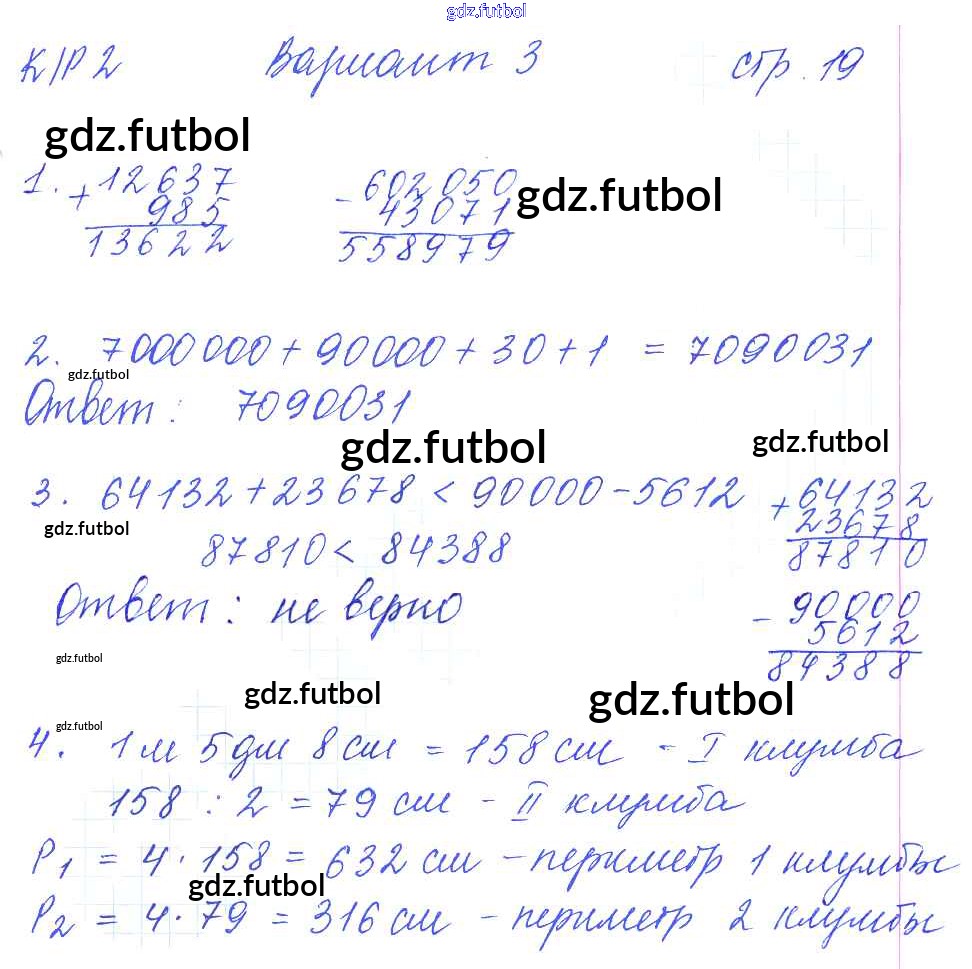 gdz.futbol
К/Р 2 Вариант 3 стр. 19
gdz.futbol
1. + 12637 - 602050 gdz.futbol
985 43071
13622 558979
2. 7000000 + 90000 + 30 + 1 = 7090031
gdz.futbol
Ответ: 7090031
gdz.futbol gdz.futbol
3. 64132 + 23678 < 90000 - 5612 + 64132
gdz.futbol 23678
87810 < 84388 87810
Ответ: не верно - 90000
5612
gdz.futbol 84388
gdz.futbol gdz.futbol
gdz.futbol
4. 1 м 5 дм 8 см = 158 см - I клумба
158 : 2 = 79 см - II клумба
P1 = 4 · 158 = 632 см - периметр 1 клумбы
gdz.futbol
P2 = 4 · 79 = 316 см - периметр 2 клумбы